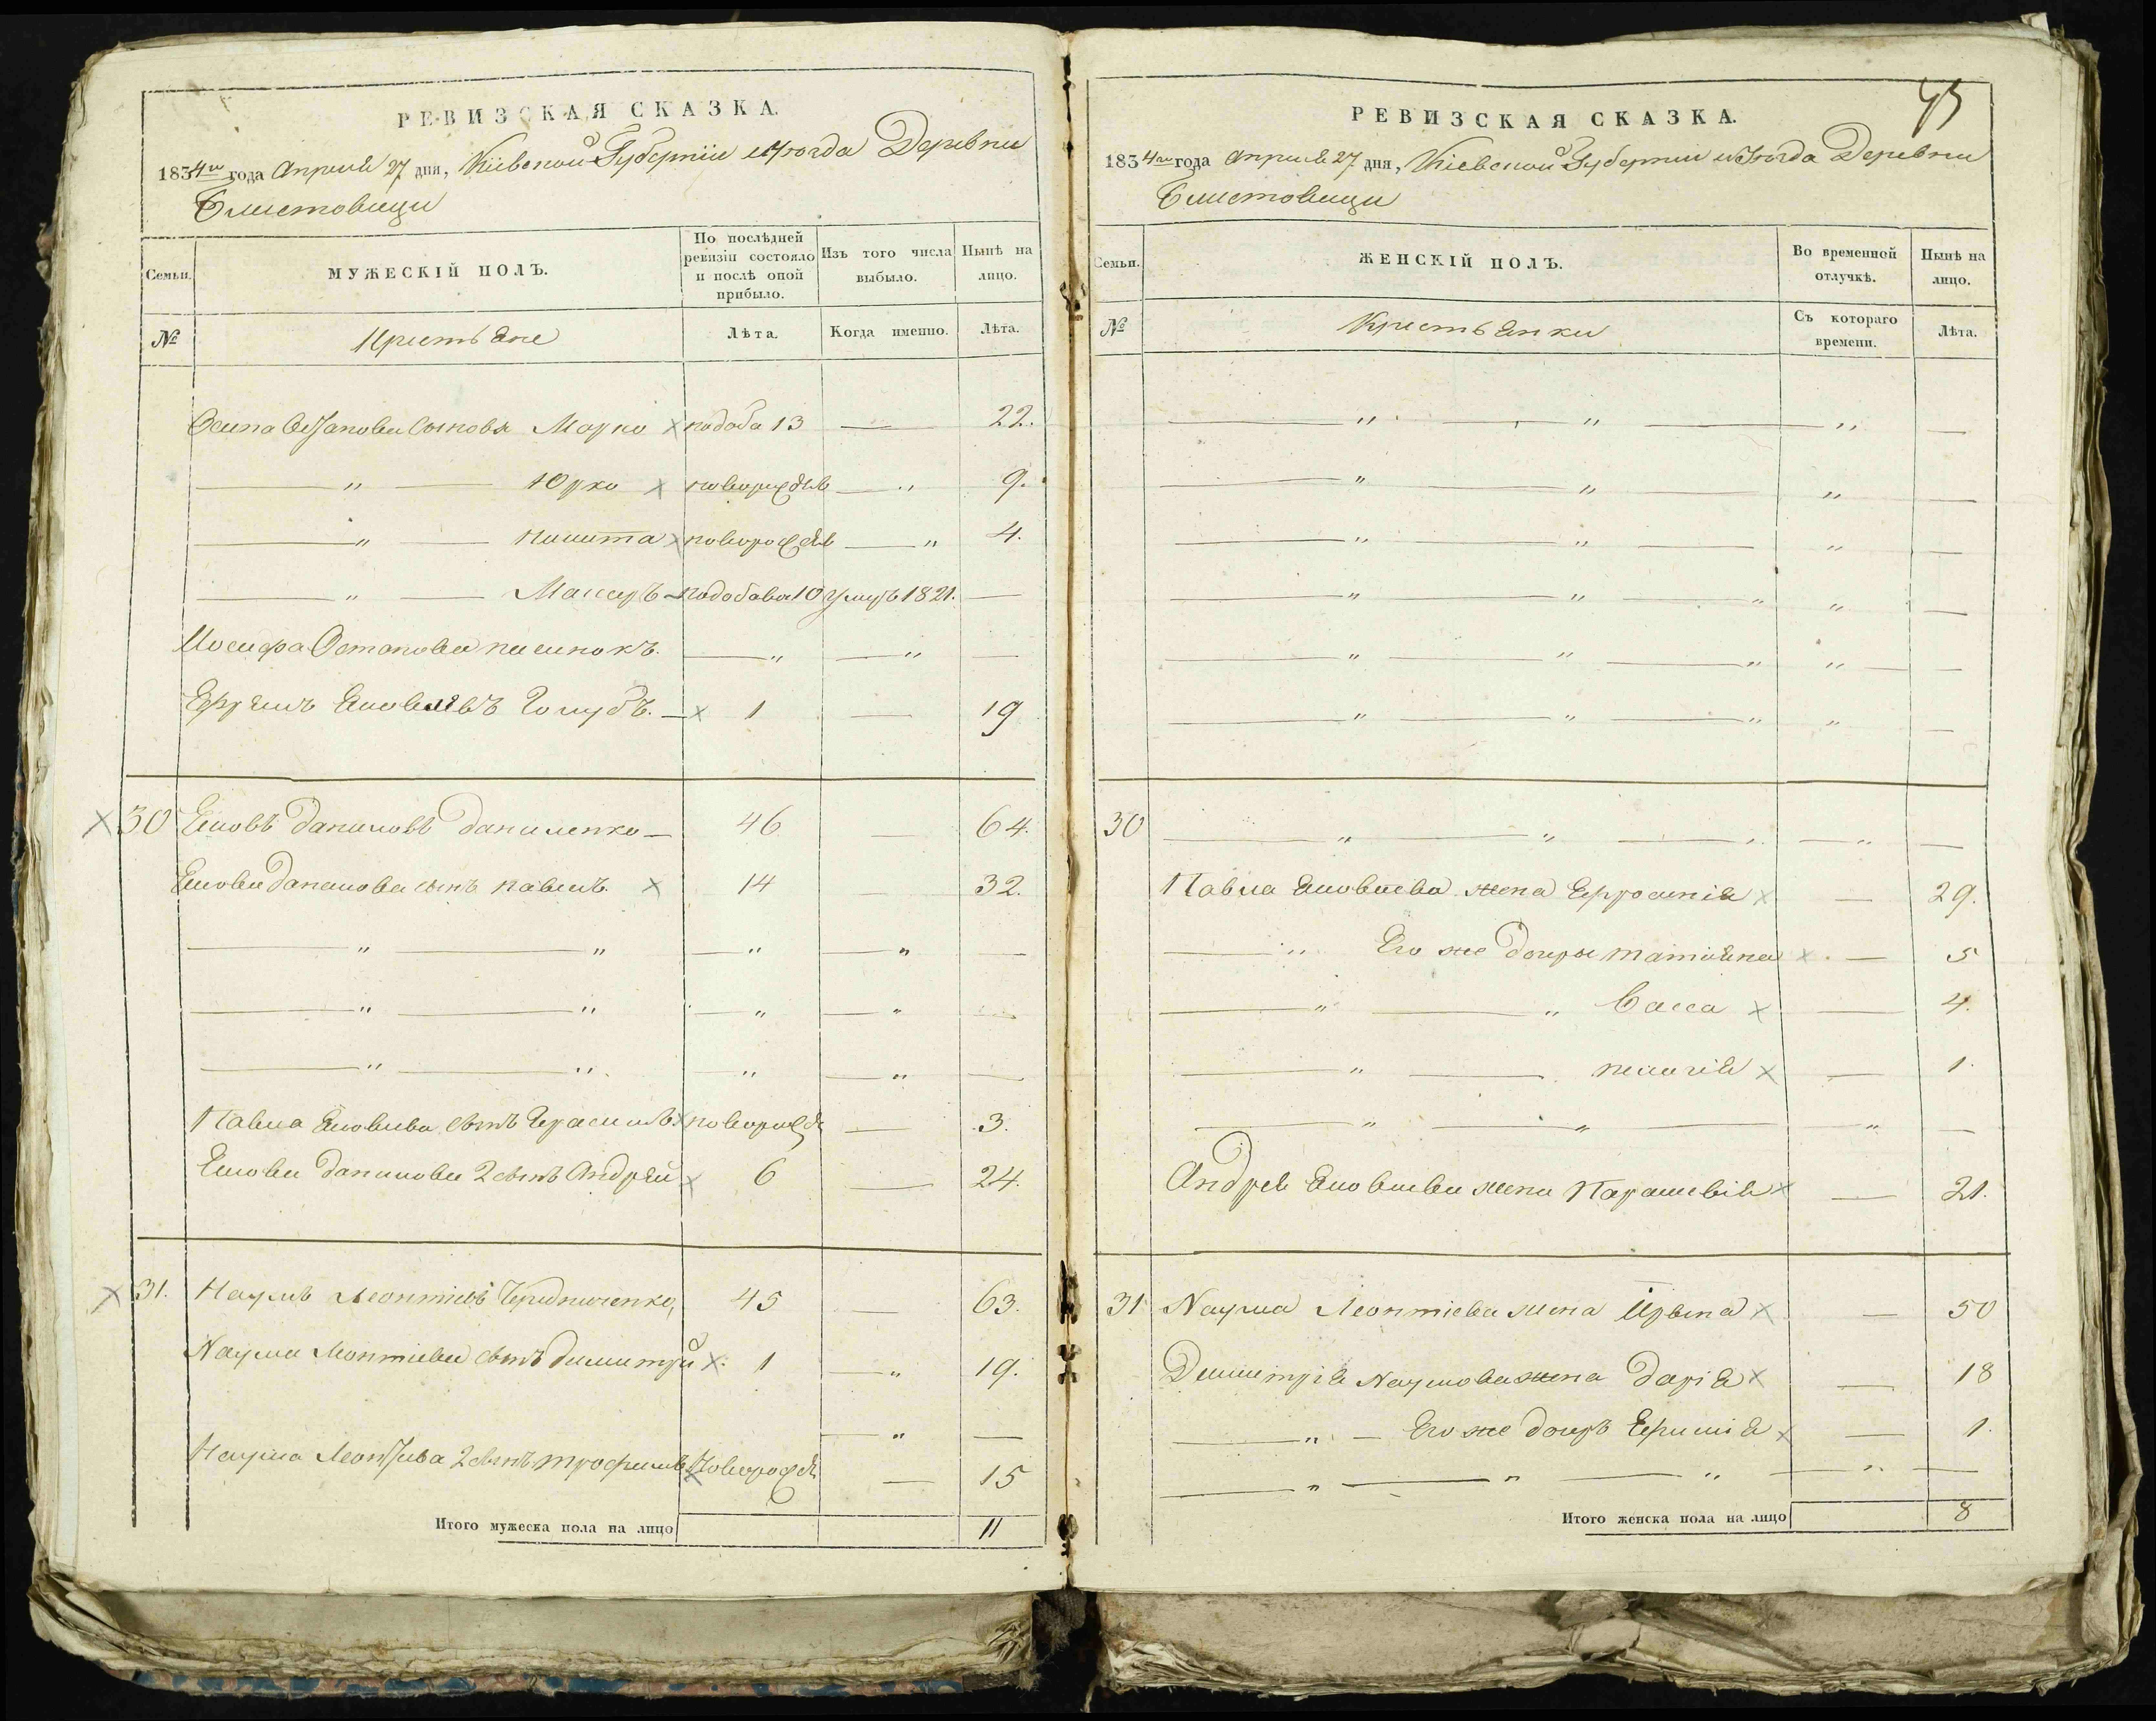 РЕВИЗСКАЯ СКАЗКА.
1834го года Апреля 27 дня, Кіевской Губерніи и уѣзда Деревни
Блиставици
Семьи. МУЖЕСКІЙ ПОЛЪ. По послѣдней ревизіи состояло и послѣ оной прибыло. Изъ того числа выбыло. Нынѣ на лицо.
№ Крестьяне Лѣта. Когда именно. Лѣта.
Осипа Остапова Сыновя Марко 13 — 22.
— " — Юрко новорожден — " 9.
— " — Никита новорожден — " 4.
— " — 10 умръ 1821. —
Иосифа Остапова пасинокъ. — " — " —
Ефремъ Яковлевъ Голубъ. — 1 — 19
30 Яковъ Даниловъ Даниленко — 46 — 64.
Якова Данилова сынъ Павелъ 14 — 32.
— " — " — " — " —
— " — " — " — " —
— " — " — " — " —
Павла Яковлева сынъ Герасимъ новорожд — 3.
Якова Данилова 2 сынъ Андрей 6 — 24.
31. Наумъ Леонтіевъ Чередниченко, 45 — 63.
Наума Леонтіева сынъ Димитрій 1 — " 19.
— " —
Наума Леонтіева 2 сынъ Трофимъ Новорожде — 15
Итого мужеска пола на лицо 11
РЕВИЗСКАЯ СКАЗКА.
1834го года Апреля 27 дня, Кіевской Губерніи и уѣзда Деревни
Блиставици
Семьи. ЖЕНСКІЙ ПОЛЪ. Во временной отлучкѣ. Нынѣ на лицо.
№ Крестьянки Съ котораго времени. Лѣта.
— " — " — " —
— " — " — " —
— " — " — " —
— " — " — " " —
— " — " — " " —
— " — " — " " —
30 — " — " — " — " —
Павла Яковлева жена Ефросинія — 29.
— " Его же дочеры Татіяна — 5
— " — " Васса — 4.
— " — Пелагія — 1.
— " — " — " —
Андрея Яковлева жена Парашевія — 21.
31 Наума Леонтіева жена Ирына — 50
Димитрія Наумова жена Дарія — 18
— " — Его же дочеръ Ефимія — 1.
— " — " — " — " —
Итого женска пола на лицо 8